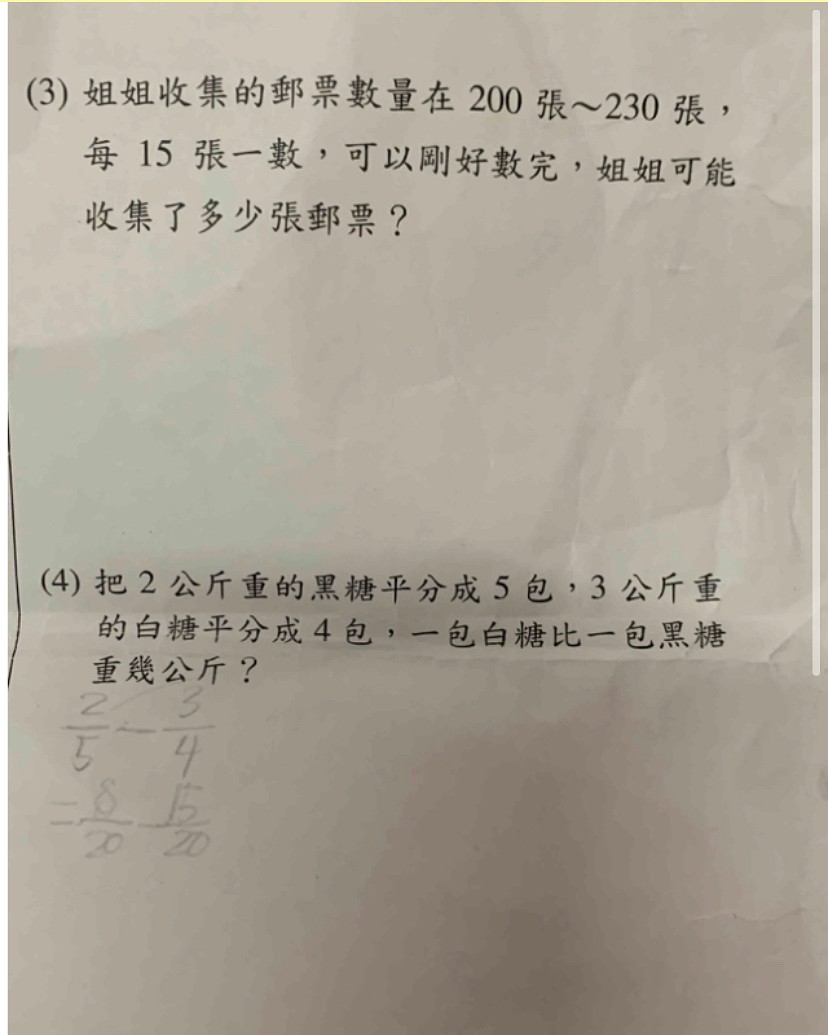 (3) 姐姐收集的郵票數量在 200 張～230 張，
每 15 張一數，可以剛好數完，姐姐可能
收集了多少張郵票？
(4) 把 2 公斤重的黑糖平分成 5 包，3 公斤重
的白糖平分成 4 包，一包白糖比一包黑糖
重幾公斤？
2/5 - 3/4
= 8/20 - 15/20